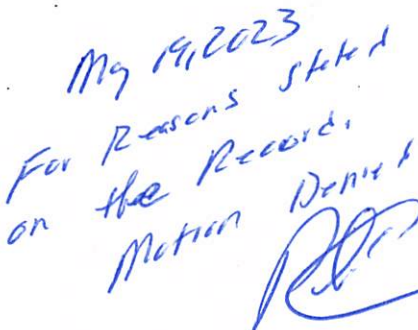 May 19, 2023
For Reasons stated
on the Record.
Motion Denied